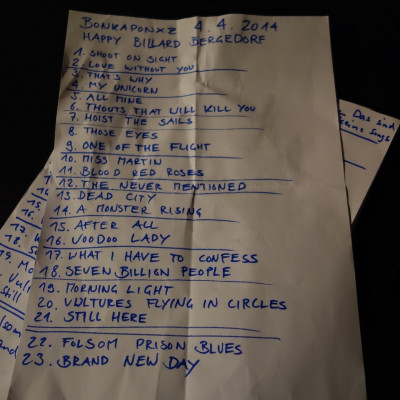 BONKAPONXZ 4.4.2014
HAPPY BILLARD BERGEDORF
1. SHOOT ON SIGHT
2. LOVE WITHOUT YOU
3. THAT'S WHY
4. MY UNICORN
5. ALL MINE
6. THOUTS THAT WILL KILL YOU
7. HOIST THE SAILS
8. THOSE EYES
9. ONE OF THE FLIGHT
10. MISS MARTIN
11. BLOOD RED ROSES
12. THE NEVER MENTIONED
13. DEAD CITY
14. A MONSTER RISING
15. AFTER ALL
16. VOODOO LADY
17. WHAT I HAVE TO CONFESS
18. SEVEN BILLION PEOPLE
19. MORNING LIGHT
20. VULTURES FLYING IN CIRCLES
21. STILL HERE
22. FOLSOM PRISON BLUES
23. BRAND NEW DAY
Das sind
16.
17.
18.
19.
Still